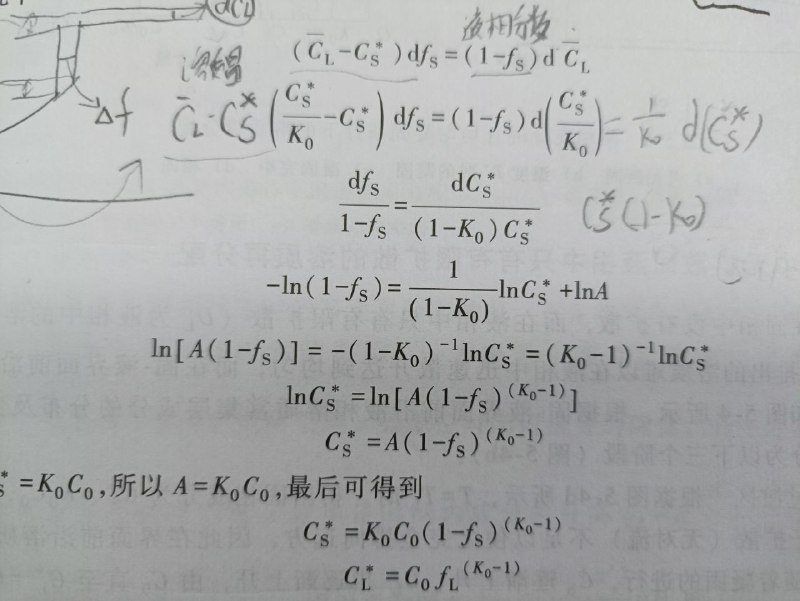 d(CL)
液相分数
溶质量
(C̄_L-C_S^*)df_S=(1-f_S)d C̄_L
Δf
C̄_L-C_S^* (C_S^*/K_0-C_S^*) df_S=(1-f_S)d(C_S^*/K_0) = 1/K_0 d(C_S^*)
df_S/(1-f_S)=dC_S^*/((1-K_0)C_S^*) C_S^*(1-K_0)
-ln(1-f_S)=1/(1-K_0) lnC_S^*+lnA
ln[A(1-f_S)]=-(1-K_0)^{-1}lnC_S^*=(K_0-1)^{-1}lnC_S^*
lnC_S^*=ln[A(1-f_S)^{(K_0-1)}]
C_S^*=A(1-f_S)^{(K_0-1)}
_S^*=K_0C_0,所以 A=K_0C_0,最后可得到
C_S^*=K_0C_0(1-f_S)^{(K_0-1)}
C_L^*=C_0 f_L^{(K_0-1)}